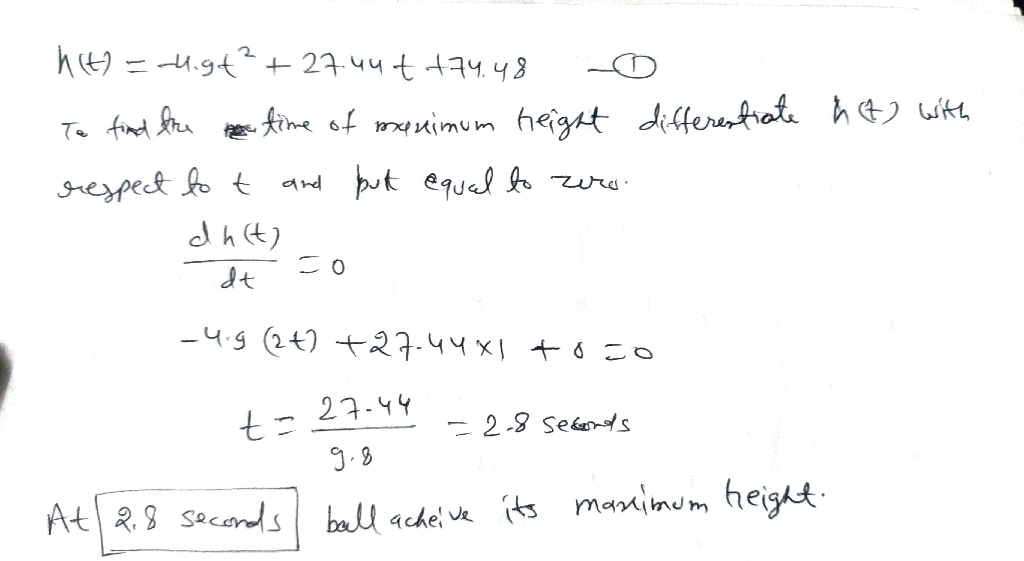 h(t) = -4.9t² + 27.44t + 74.48 — ①
To find the time of maximum height differentiate h(t) with
respect to t and put equal to zero.
dh(t)
dt
= 0
-4.9 (2t) + 27.44×1 + 0 = 0
t = 27.44
9.8
= 2.8 seconds
At 2.8 seconds ball acheive its maximum height.